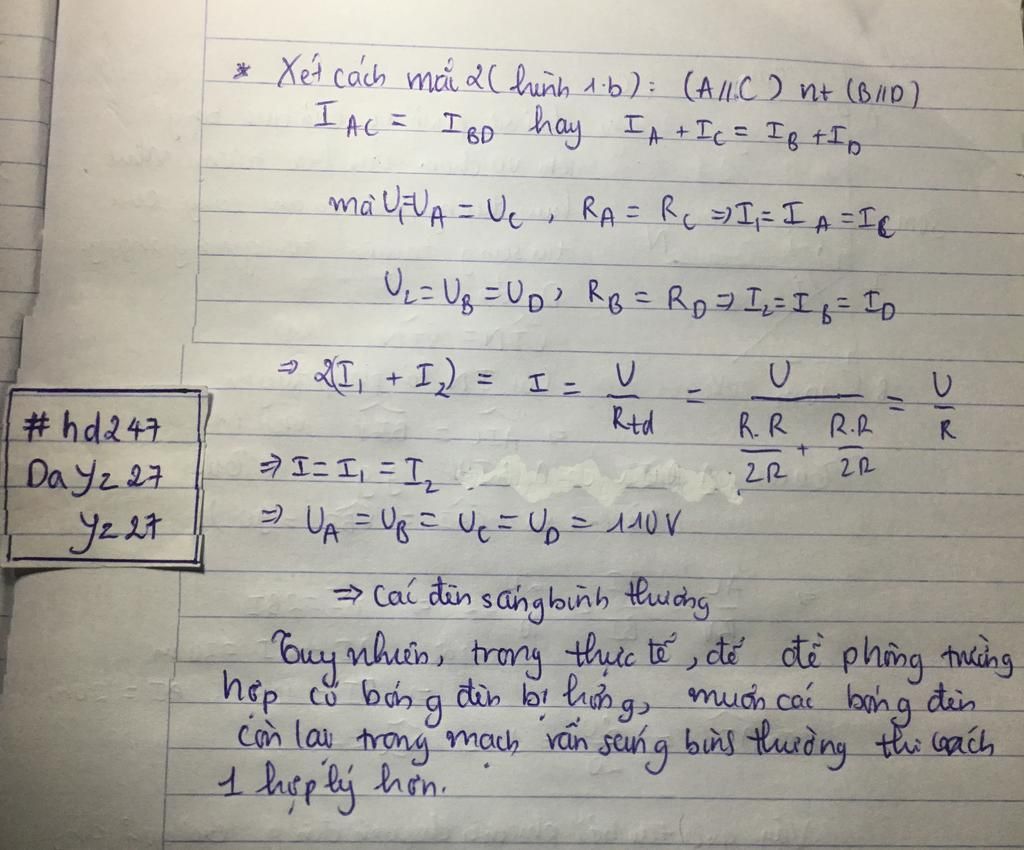 * Xét cách mắc 2 (hình 1.b): (A//C) nt (B//D)
I AC = I BD hay I A + I C = I B + I D
mà U₁=U A = U C , R A = R C ⇒ I₁ = I A = I C
U₂ = U B = U D , R B = R D ⇒ I₂ = I B = I D
⇒ 2(I₁ + I₂) = I = U/Rtđ = U/(R.R/2R + R.R/2R) = U/R
⇒ I = I₁ = I₂
⇒ U A = U B = U C = U D = 110V
⇒ Các đèn sáng bình thường
Tuy nhiên, trong thực tế, để đề phòng trường
hợp có bóng đèn bị hỏng, muốn các bóng đèn
còn lại trong mạch vẫn sáng bình thường thì cách
1 hợp lý hơn.
#hd247
DaYz27
Yz27